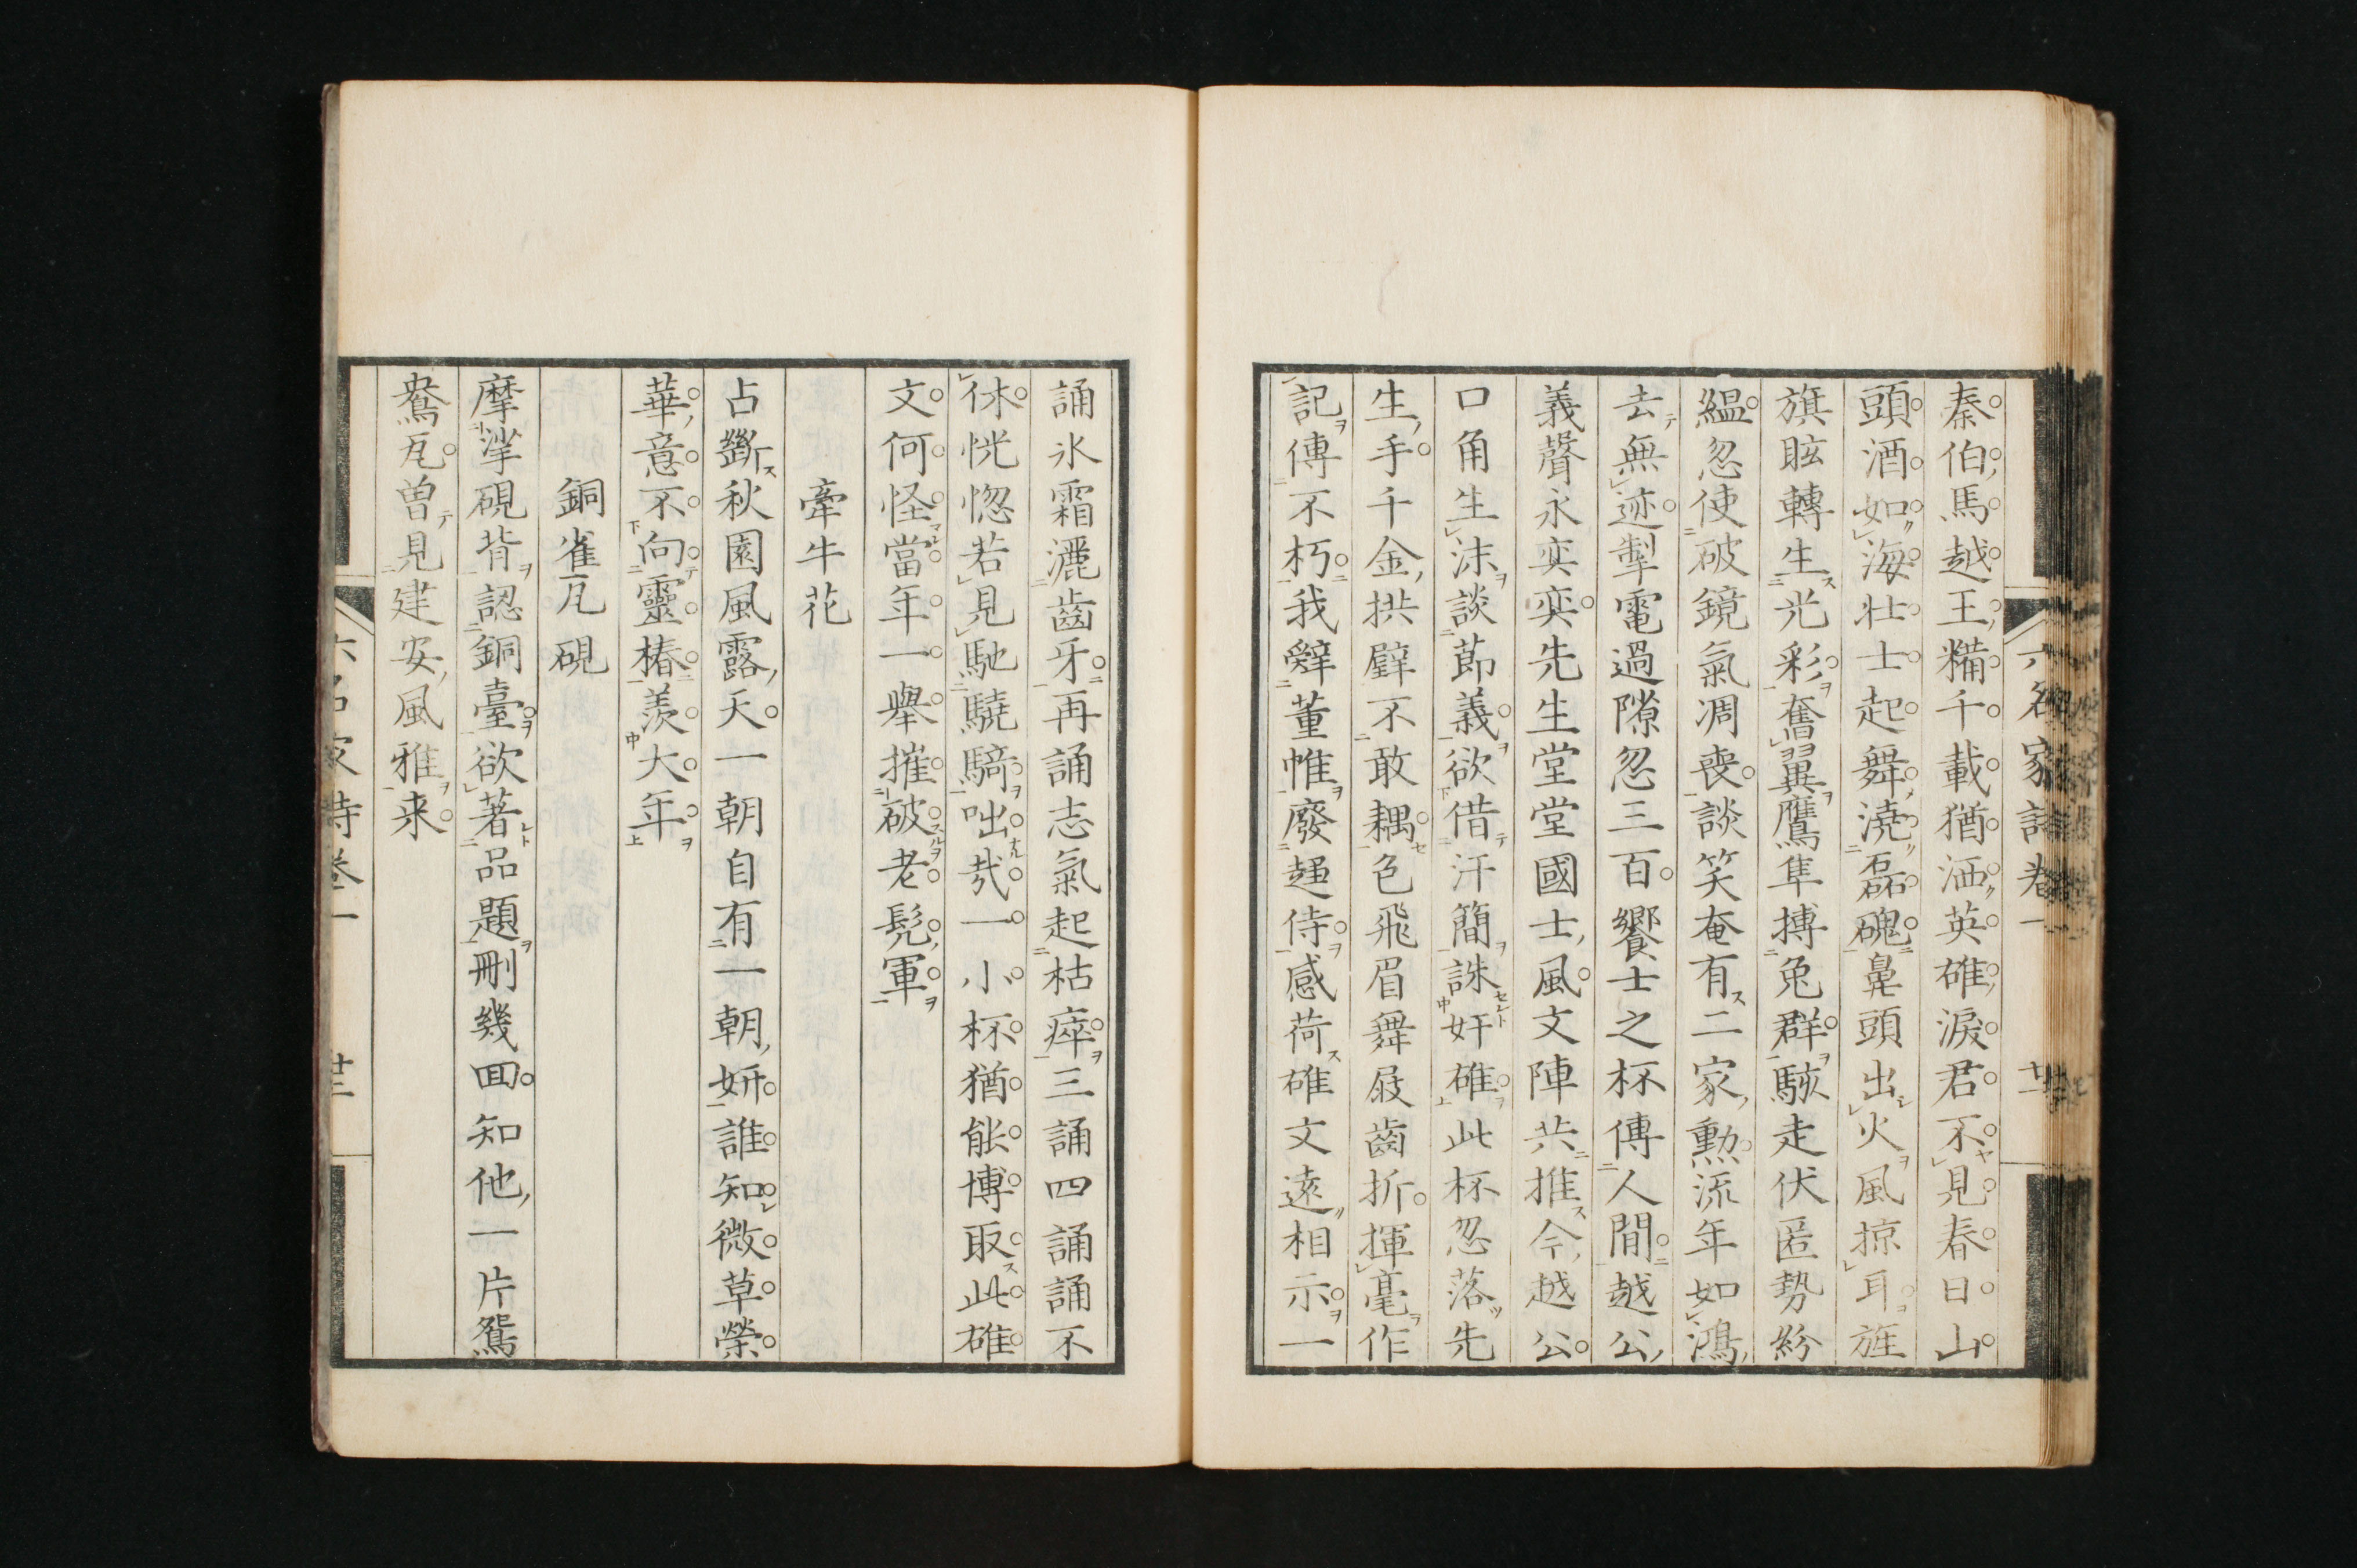 六名家詩卷一
秦伯馬越王糒千載猶洒英碓淚君不見春日山
頭酒如海壯士起舞澆磊磈鼻頭出火風掠耳旌
旗眩轉生光彩奮翼鷹隼搏兎群駭走伏匿勢紛
縕忽使破鏡氣凋喪談笑奄有二家勲流年如鴻
去無迹掣電過隙忽三百饗士之杯傳人間越公
義聲永奕奕先生堂堂國士風文陣共推今越公
口角生沫談節義欲借汗簡誅奸碓此杯忽落先
生手千金拱璧不敢耦色飛眉舞屐齒折揮毫作
記傳不朽我辭董帷廢趨侍感荷碓文遠相示一
誦氷霜灑齒牙再誦志氣起枯瘁三誦四誦誦不
休恍惚若見馳驍騎咄哉一小杯猶能博取此碓
文何怪當年一擧摧破老髡軍
牽牛花
占斷秋園風露天一朝自有一朝妍誰知微草榮
華意不向靈椿羨大年
銅雀瓦硯
摩挲硯背認銅臺欲著品題刪幾回知他一片鴛
鴦瓦曽見建安風雅来
六名家詩卷一